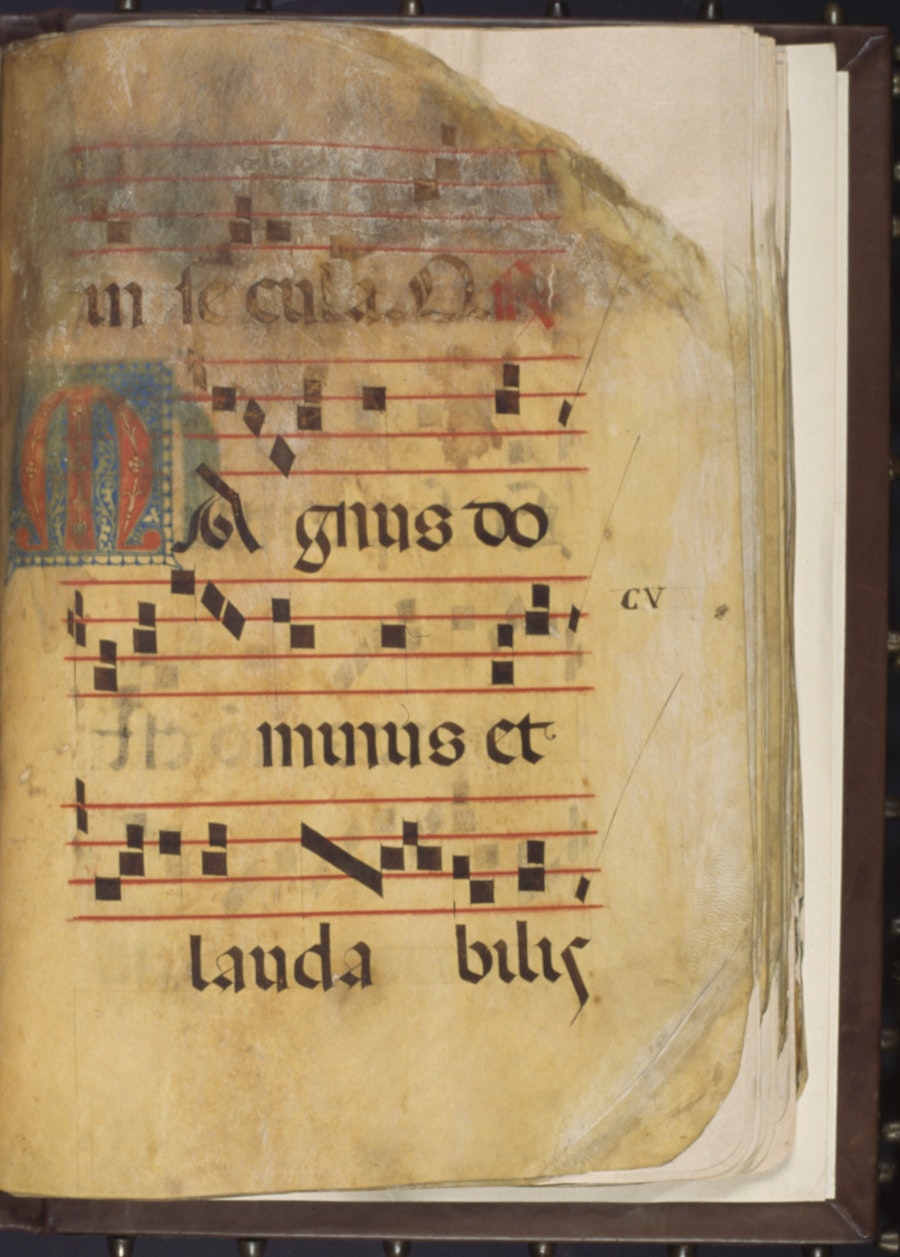 in secula.
MA gnus do
CV
minus et
lauda bilis